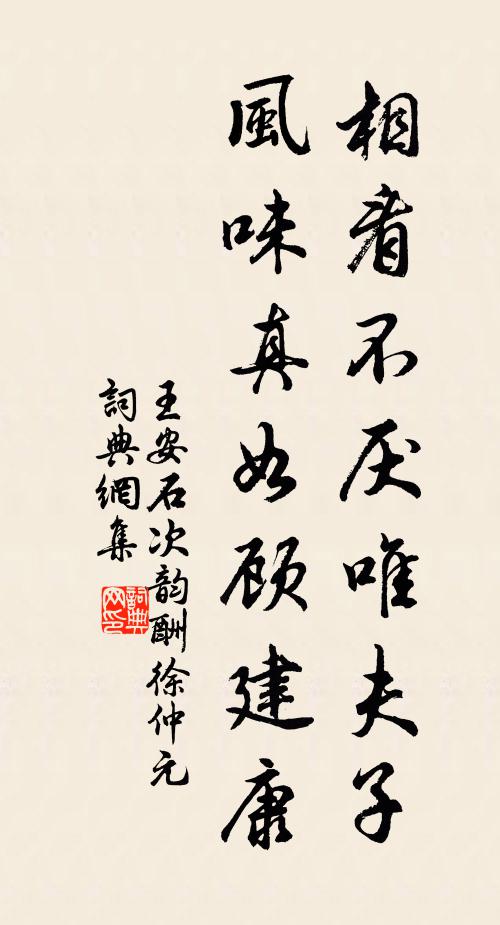 相看不厌唯夫子
風味真如顾建康
王安石次韵酬徐仲元
詞典網集
詞典网印